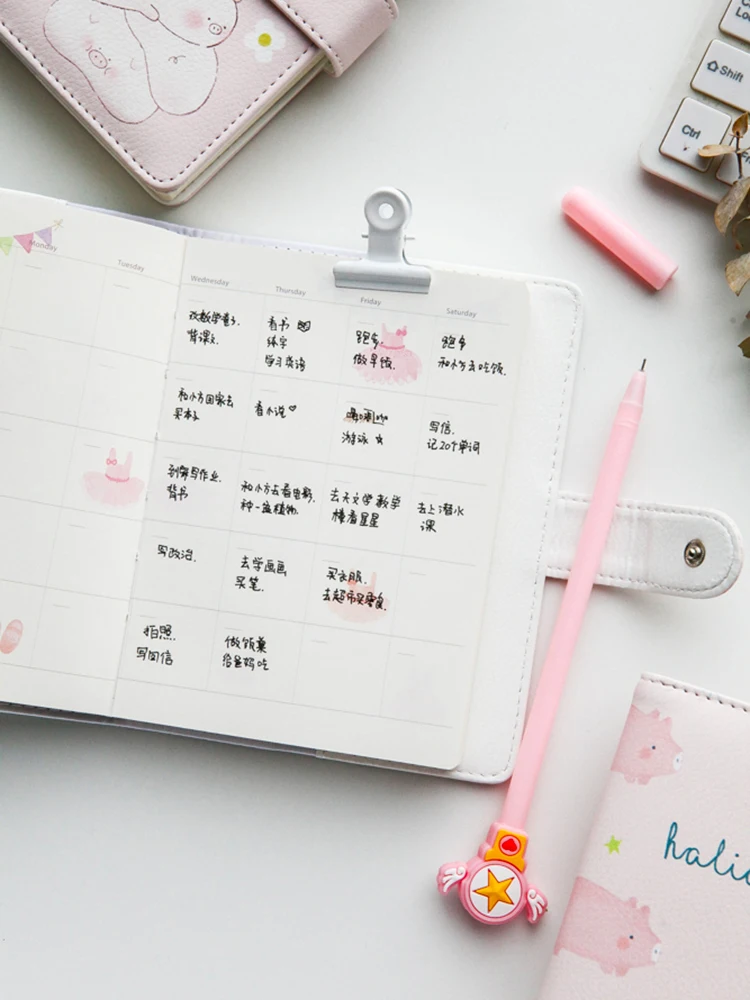 Shift
Ctrl
Monday
Tuesday
Wednesday
Thursday
Friday
Saturday
改数学卷子.
背课文.
看书
练字
学习英语
跑步.
做早饭.
跑步
和小方去吃饭.
和小方回家去
买本子
看小说♡
游泳 ☆
写信.
记20个单词
到馆写作业.
背书
和小方去看电影,
种一盆植物.
去天文学教学
楼看星星
去上潜水
课
写政治.
去学画画
买笔.
买衣服.
去超市买零食.
拍照.
写回信
做饭菜
给爸妈吃